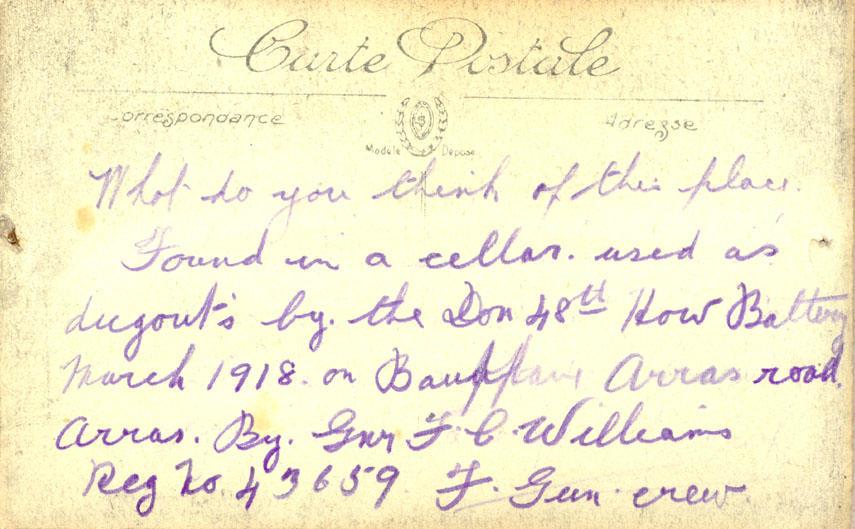 Carte Postale
Correspondance
Adresse
Modèle Déposé
What do you think of this place.
Found in a cellar. used as
dugout's by. the Don 48th How Battery
March 1918. on Arras road.
Arras. By. Gnr F. C. Williams
Reg No. 43659. F. Gun crew.